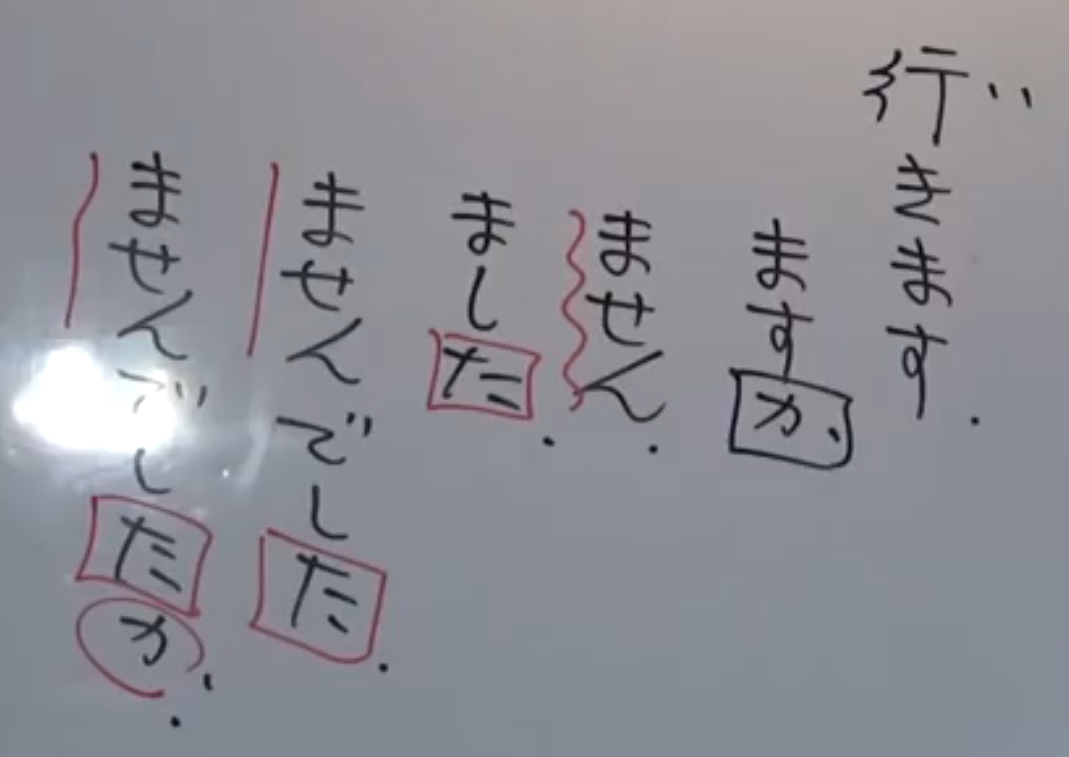 行きます.
ますか.
ません.
ました.
ませんでした.
ませんでしたか.